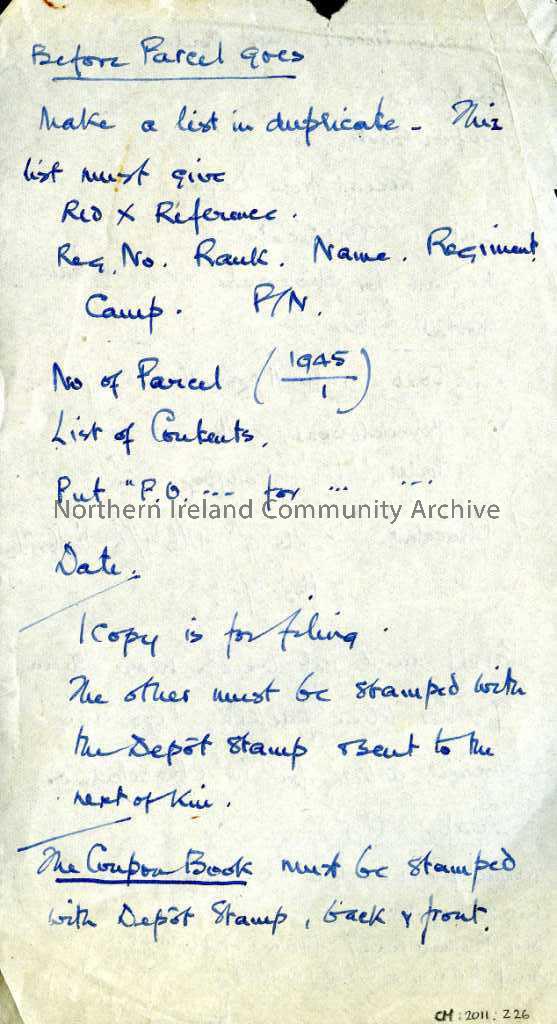 Before Parcel goes
Make a list in duplicate - This
list must give
Red X Reference.
Reg. No. Rank. Name. Regiment
Camp. P/N.
No of Parcel (1945/1)
List of Contents.
Put "P.O. --- for --- ---
Northern Ireland Community Archive
Date.
1 copy is for filing.
The other must be stamped with
the Depôt Stamp & sent to the
next of Kin.
The Coupon Book must be stamped
with Depôt Stamp, back & front.
CM:2011:226